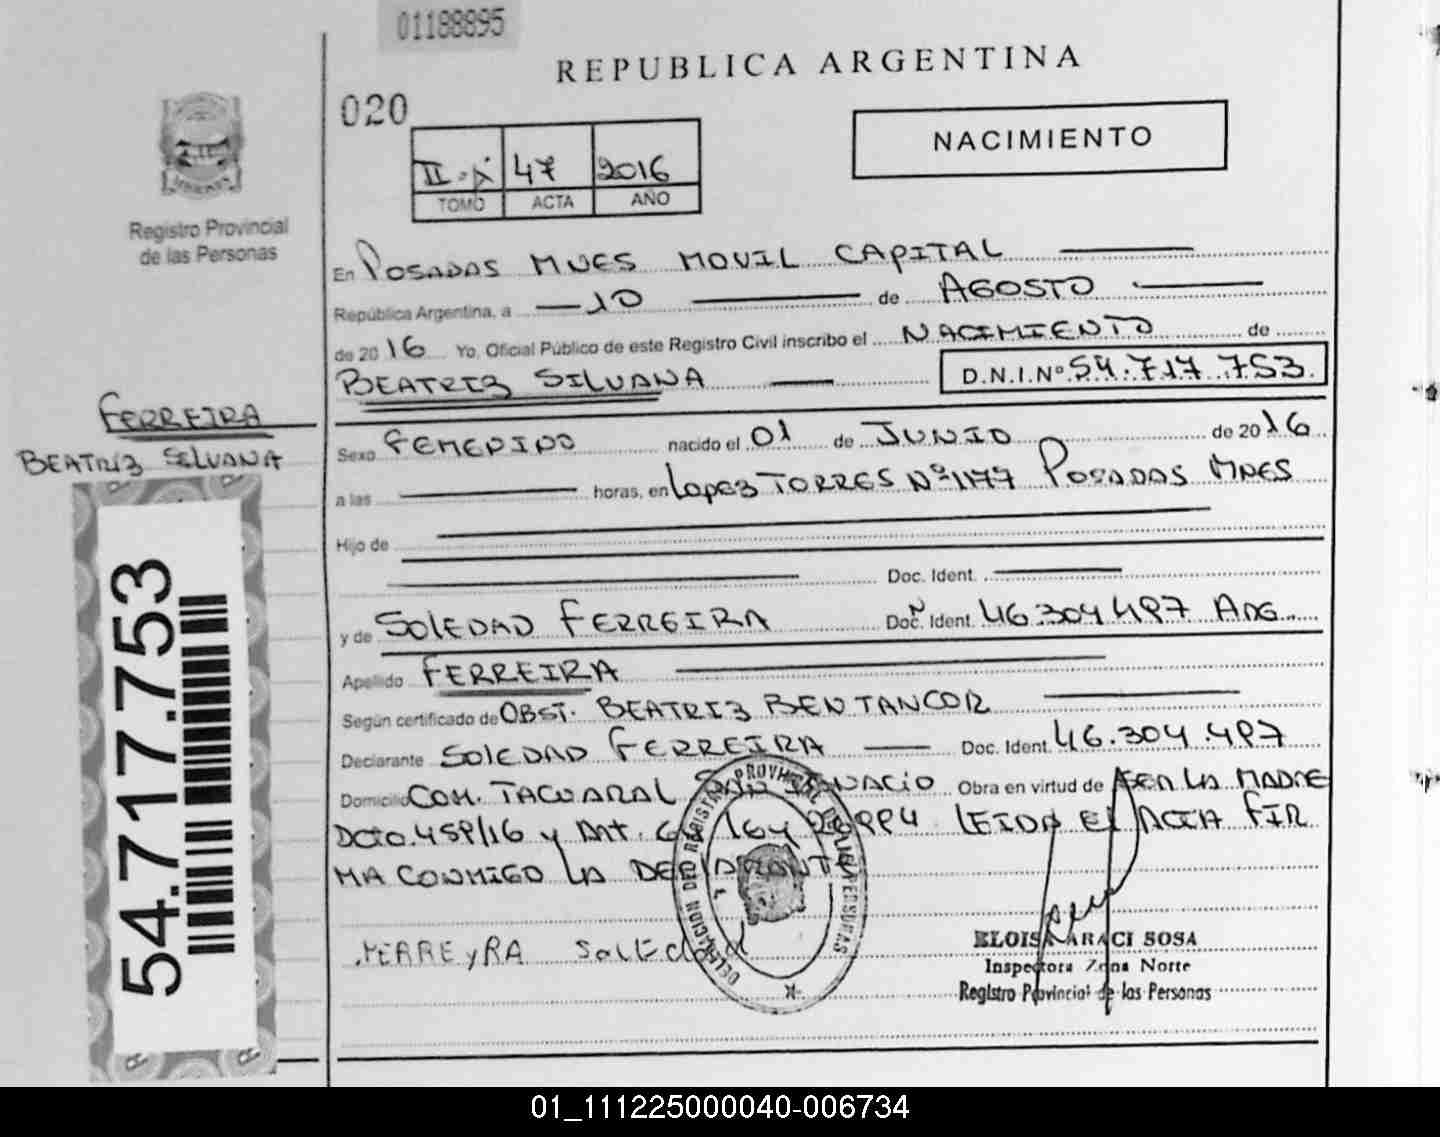 01188895
REPUBLICA ARGENTINA
020
NACIMIENTO
47 2016
TOMO ACTA AÑO
Registro Provincial
de las Personas
En POSADAS MNES MOVIL CAPITAL
República Argentina, a 10 de AGOSTO
de 2016 Yo, Oficial Público de este Registro Civil inscribo el NACIMIENTO de
BEATRIZ SILVANA D.N.I.Nº 54.717.753
FERREIRA
BEATRIZ SILVANA
Sexo FEMENINO nacido el 01 de JUNIO de 2016
a las horas, en LOPEZ TORRES Nº 1177 POSADAS MNES
Hijo de
Doc. Ident.
y de SOLEDAD FERREIRA Doc. Ident. 46.304.497 ARG.
Apellido FERREIRA
Según certificado de OBST. BEATRIZ BENTANCOR
Declarante SOLEDAD FERREIRA Doc. Ident. 46.304.497
Domicilio COM. TACUARAL SAN IGNACIO Obra en virtud de SER LA MADRE
DCTO. 459/16 y LEIDA EL ACTA FIR
MA CONMIGO LA DECLARANTE
FERREyRA SOLEdad
ELOISA ARACI SOSA
Inspectora Zona Norte
Registro Provincial de las Personas
54.717.753
01_111225000040-006734